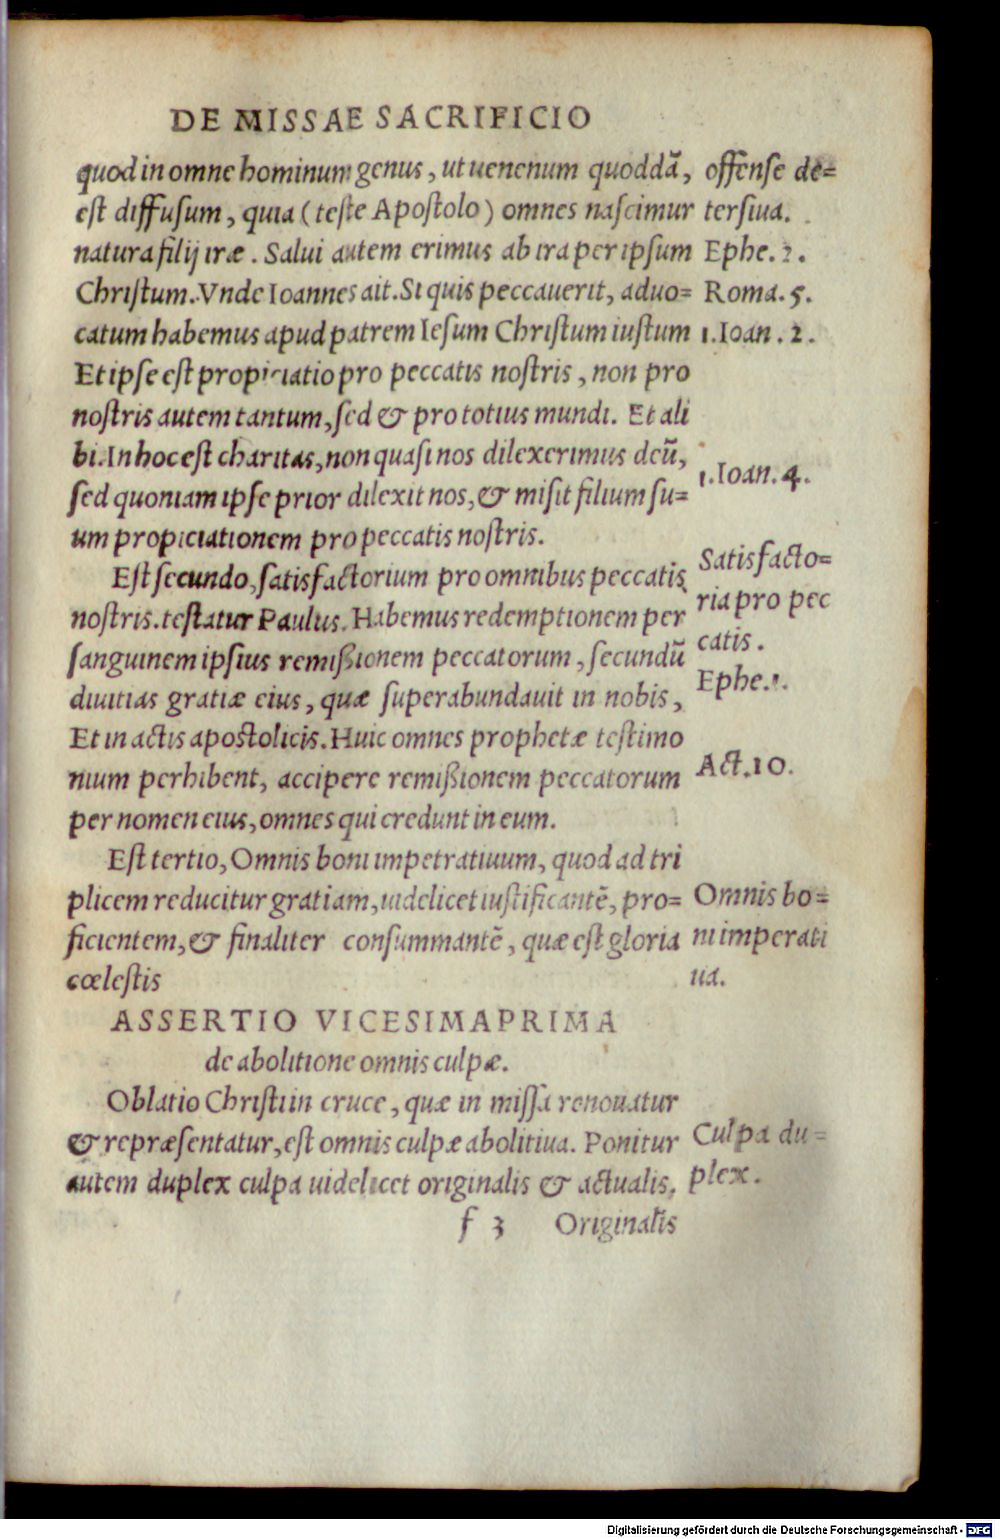 DE MISSAE SACRIFICIO
quod in omne hominum genus, ut uenenum quoddã,
est diffusum, quia (teste Apostolo) omnes nascimur
natura filij iræ. Salui autem erimus ab ira per ipsum
Christum. Vnde Ioannes ait. Si quis peccauerit, aduo=
catum habemus apud patrem Iesum Christum iustum
Et ipse est propiciatio pro peccatis nostris, non pro
nostris autem tantum, sed & pro totius mundi. Et ali
bi. In hoc est charitas, non quasi nos dilexerimus deũ,
sed quoniam ipse prior dilexit nos, & misit filium su=
um propiciationem pro peccatis nostris.
Est secundo, satisfactorium pro omnibus peccatis
nostris. testatur Paulus. Habemus redemptionem per
sanguinem ipsius remißionem peccatorum, secundũ
diuitias gratiæ eius, quæ superabundauit in nobis,
Et in actis apostolicis. Huic omnes prophetæ testimo
nium perhibent, accipere remißionem peccatorum
per nomen eius, omnes qui credunt in eum.
Est tertio, Omnis boni impetratiuum, quod ad tri
plicem reducitur gratiam, uidelicet iustificantẽ, pro=
ficientem, & finaliter consummantẽ, quæ est gloria
cœlestis
ASSERTIO VICESIMAPRIMA
de abolitione omnis culpæ.
Oblatio Christi in cruce, quæ in missa renouatur
& repræsentatur, est omnis culpæ abolitiua. Ponitur
autem duplex culpa uidelicet originalis & actualis.
f 3 Originalis
offense de=
tersiua.
Ephe. 2.
Roma. 5.
1. Ioan. 2.
1. Ioan. 4.
Satisfacto=
ria pro pec
catis.
Ephe. 1.
Act. 10.
Omnis bo=
ni imperati
ua.
Culpa du=
plex.
Digitalisierung gefördert durch die Deutsche Forschungsgemeinschaft - DFG